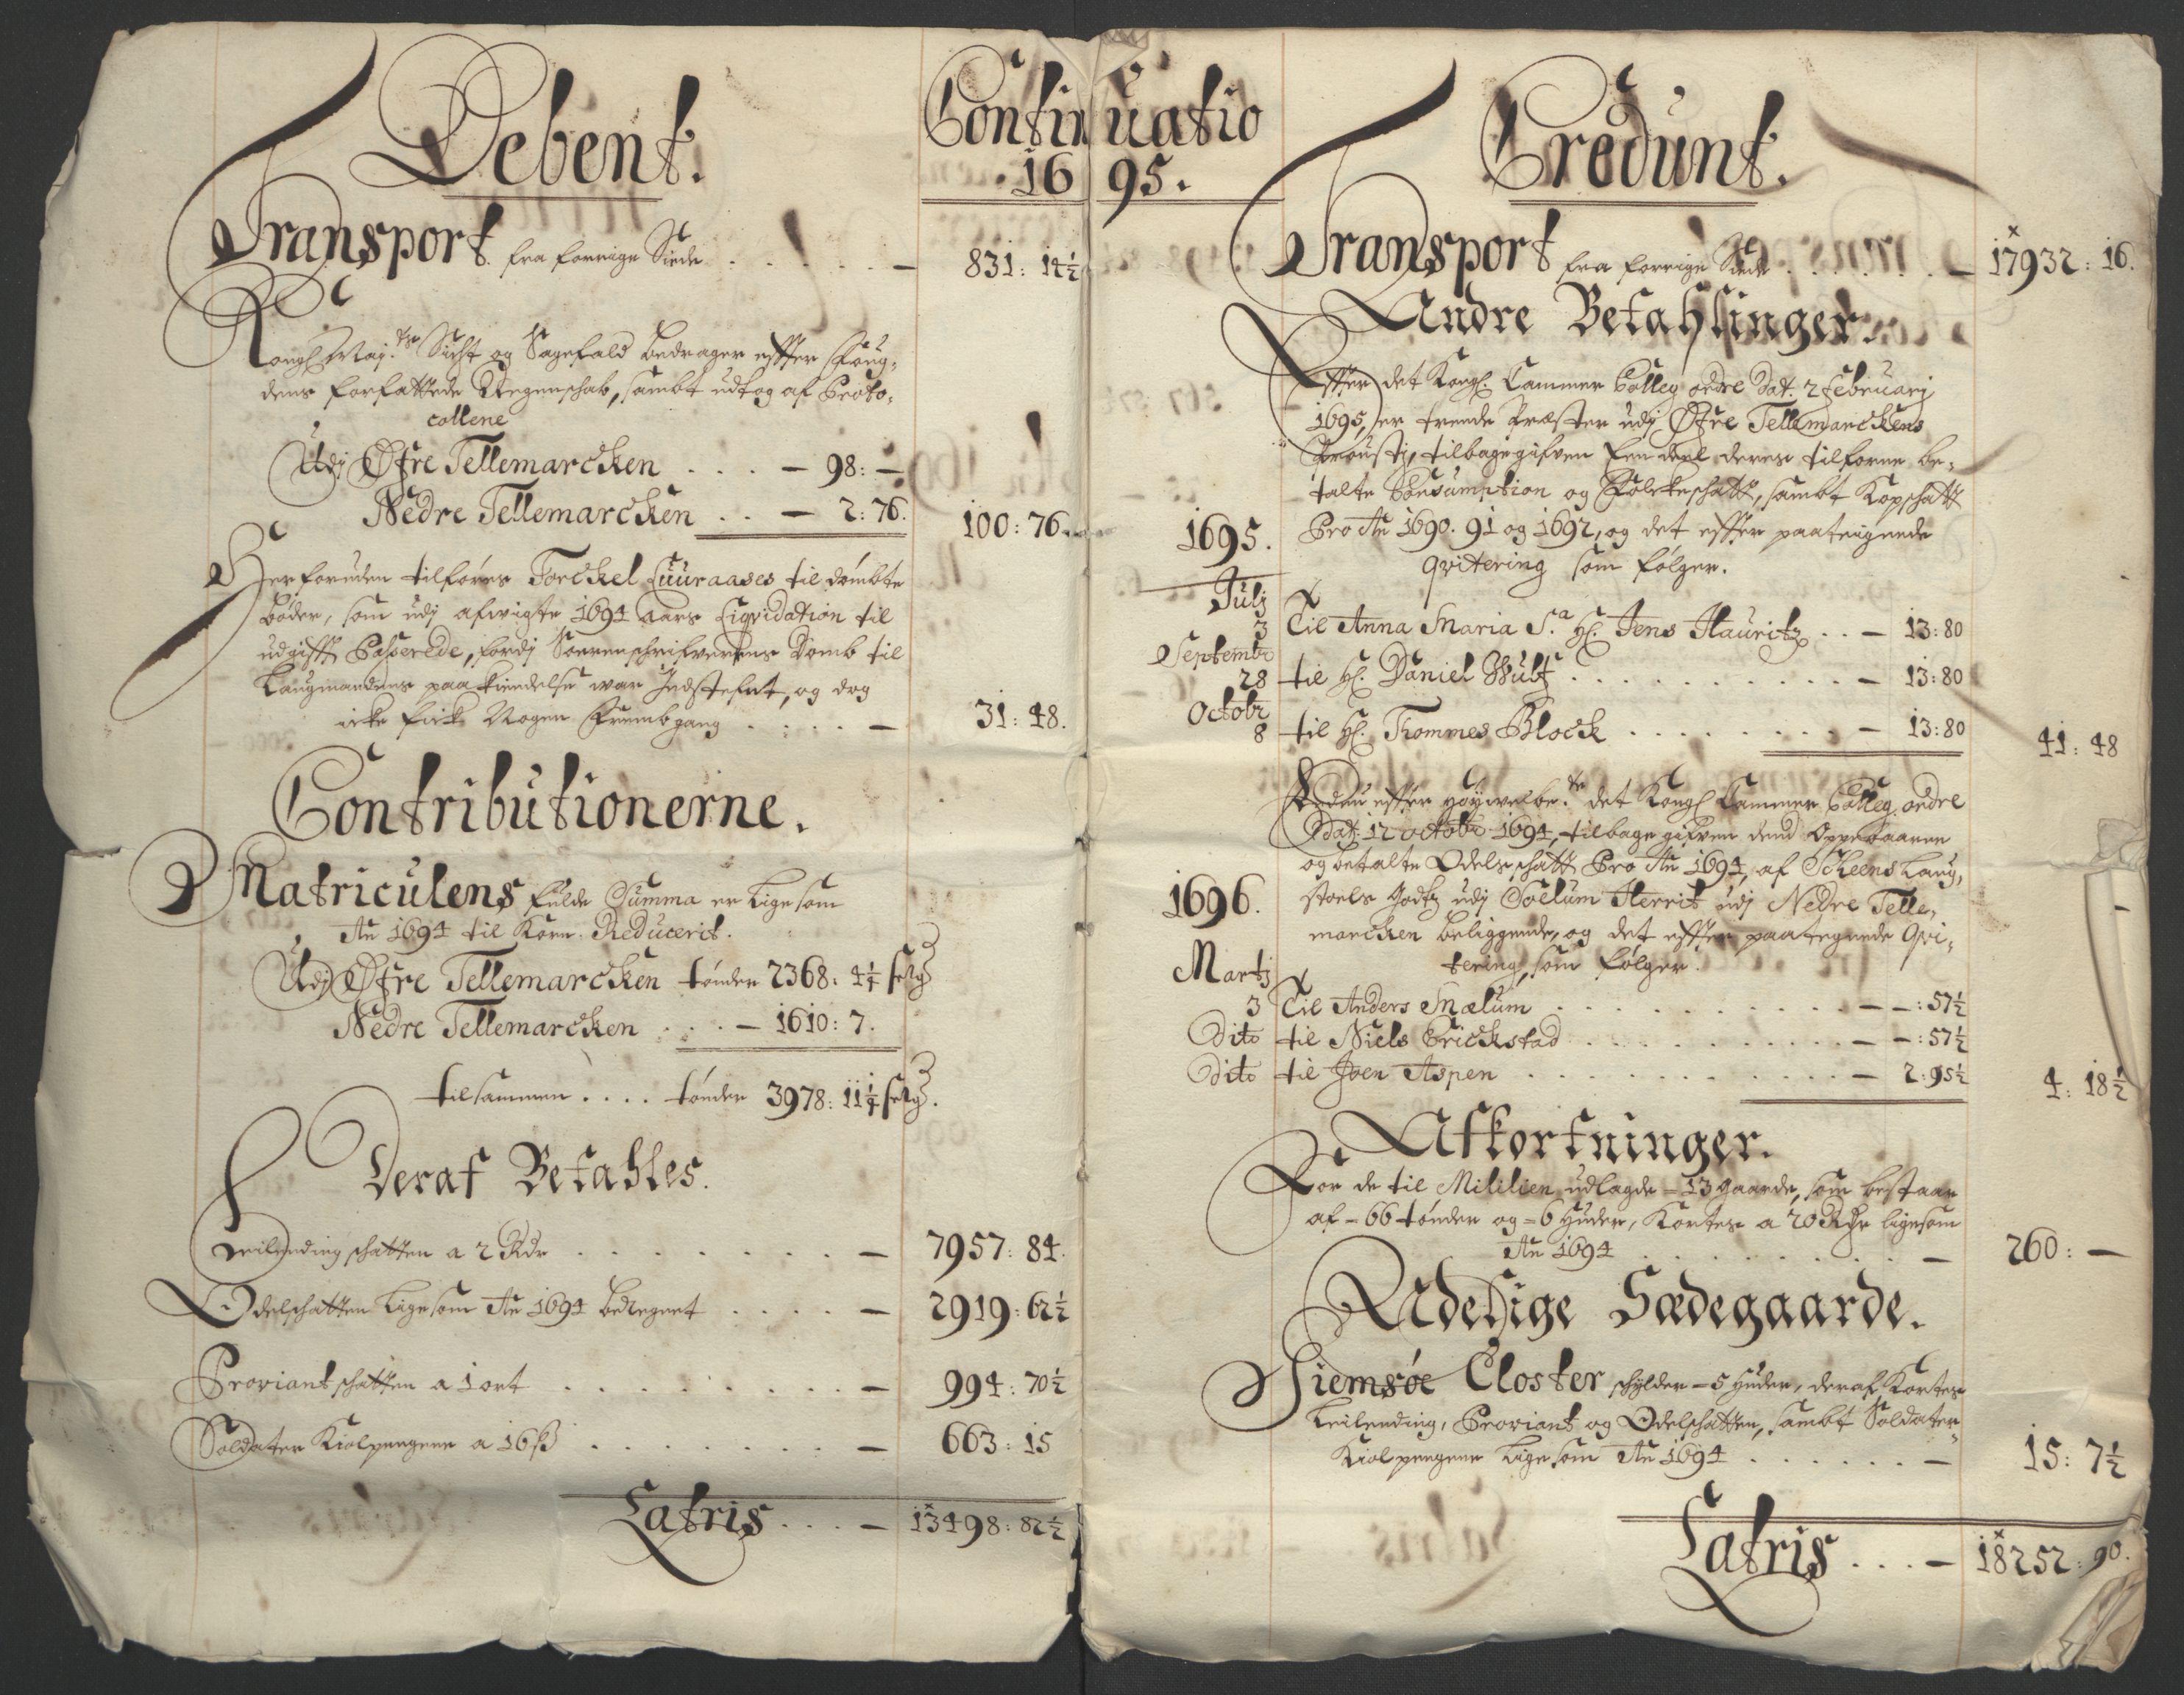 Debent.
Continuatio
1695.
Transport fra forrige Siide . . . . . . — 831: 14½
Kongl Maj.ts Sicht og Sagefald bedrager effter Foug-
dens forfattede Regenschab, sambt udtog af Proto-
collene
Udj Øfre Tellemarcken . . . . — 98: —
Nedre Tellemarcken . . — 2: 76.
100: 76.
Herforuden tilføres Torckel Luuraases til dömbte
bøder, som udj afvigte 1694 aars Liqvidation til
udgifft Passerede, fordj Sorenschrifverens Domb til
Laugmandens paakiendelse war Indstefnt, og dog
icke fick Nogen Frembgang . . . . — 31: 48.
Contributionerne.
Matriculens fulde Summa er Ligesom
Ao 1694 til Korn Reducerit.
Udj Øfre Tellemarcken tönder 2368: 4¼
Nedre Tellemarcken . . . — 1610: 7.
tilsammen . . . . tönder 3978: 11¼
Deraf Betahles.
Leilending schatten a 2 Rdr . . . . . . — 7957: 84.
Odelschatten Ligesom Ao 1694 beregnet . . . . — 2919: 62½
Proviantschatten a 1 ort . . . . . . . . — 994: 70½
Soldater Kiolpengene a 16 ß . . . . . . — 663: 15
Latris . . . — 13498: 82½
Credunt.
Transport fra forrige Siide . . . . . . — 17932: 16.
Andre Betahlinger.
Effter det Kongl. Cammer Colleg ordre Dat. 2 Februarj
1695, er trende Præster udj Øfre Tellemarckens
Proustj, tilbagegifven Een deel deres tilforne be-
talte Consumption og Folckeschatt, sambt Kopschatt
Pro Ao 1690. 91 og 1692, og det effter paategnede
qvitering som følger.
1695.
Julj
3 Til Anna Maria S.a Hr. Jens Lauritz . . — 13: 80
Septembr
28 til Hr. Daniel Wulf . . . . . . . . . — 13: 80
Octobr
8 til Hr. Tommes Block . . . . . . . . — 13: 80
41: 48
Endnu effter høywelbe.te det Kongl Cammer Colleg. ordre
Dat. 12 octobr 1694, tilbagegifven dend Oppebaaren
og betalte Odelsschatt Pro Ao 1694, af Scheens Laug-
stoels godtz udj Soelum Herrit udj Nedre Telle-
marcken beliggende, og det effter paategnede Qvi-
tering, som følger.
1696.
Martj
3 Til Anders Mælum . . . . . . . . . . — —: 57½
Dito til Niels Erickstad . . . . . . . . . — —: 57½
Dito til Joen Aspen . . . . . . . . . . . — 2: 95½
4: 18½
Afkortninger.
For de til Mililien udlagde — 13 gaarde, som bestaar
af — 66 tönder og — 6 Huder, Kortes a 20 Rdr ligesom
Ao 1694 . . . . . . . . . — 260: —
Adelige Sædegaarde.
Giemsøe Closter schylder — 5 Huder, deraf Kortes
Leilending, Proviant og Odelschatten, sambt Soldater-
Kiolpengene Ligesom Ao 1694 . . . . . . — 15: 7½
Latris . . . — 18252: 90.